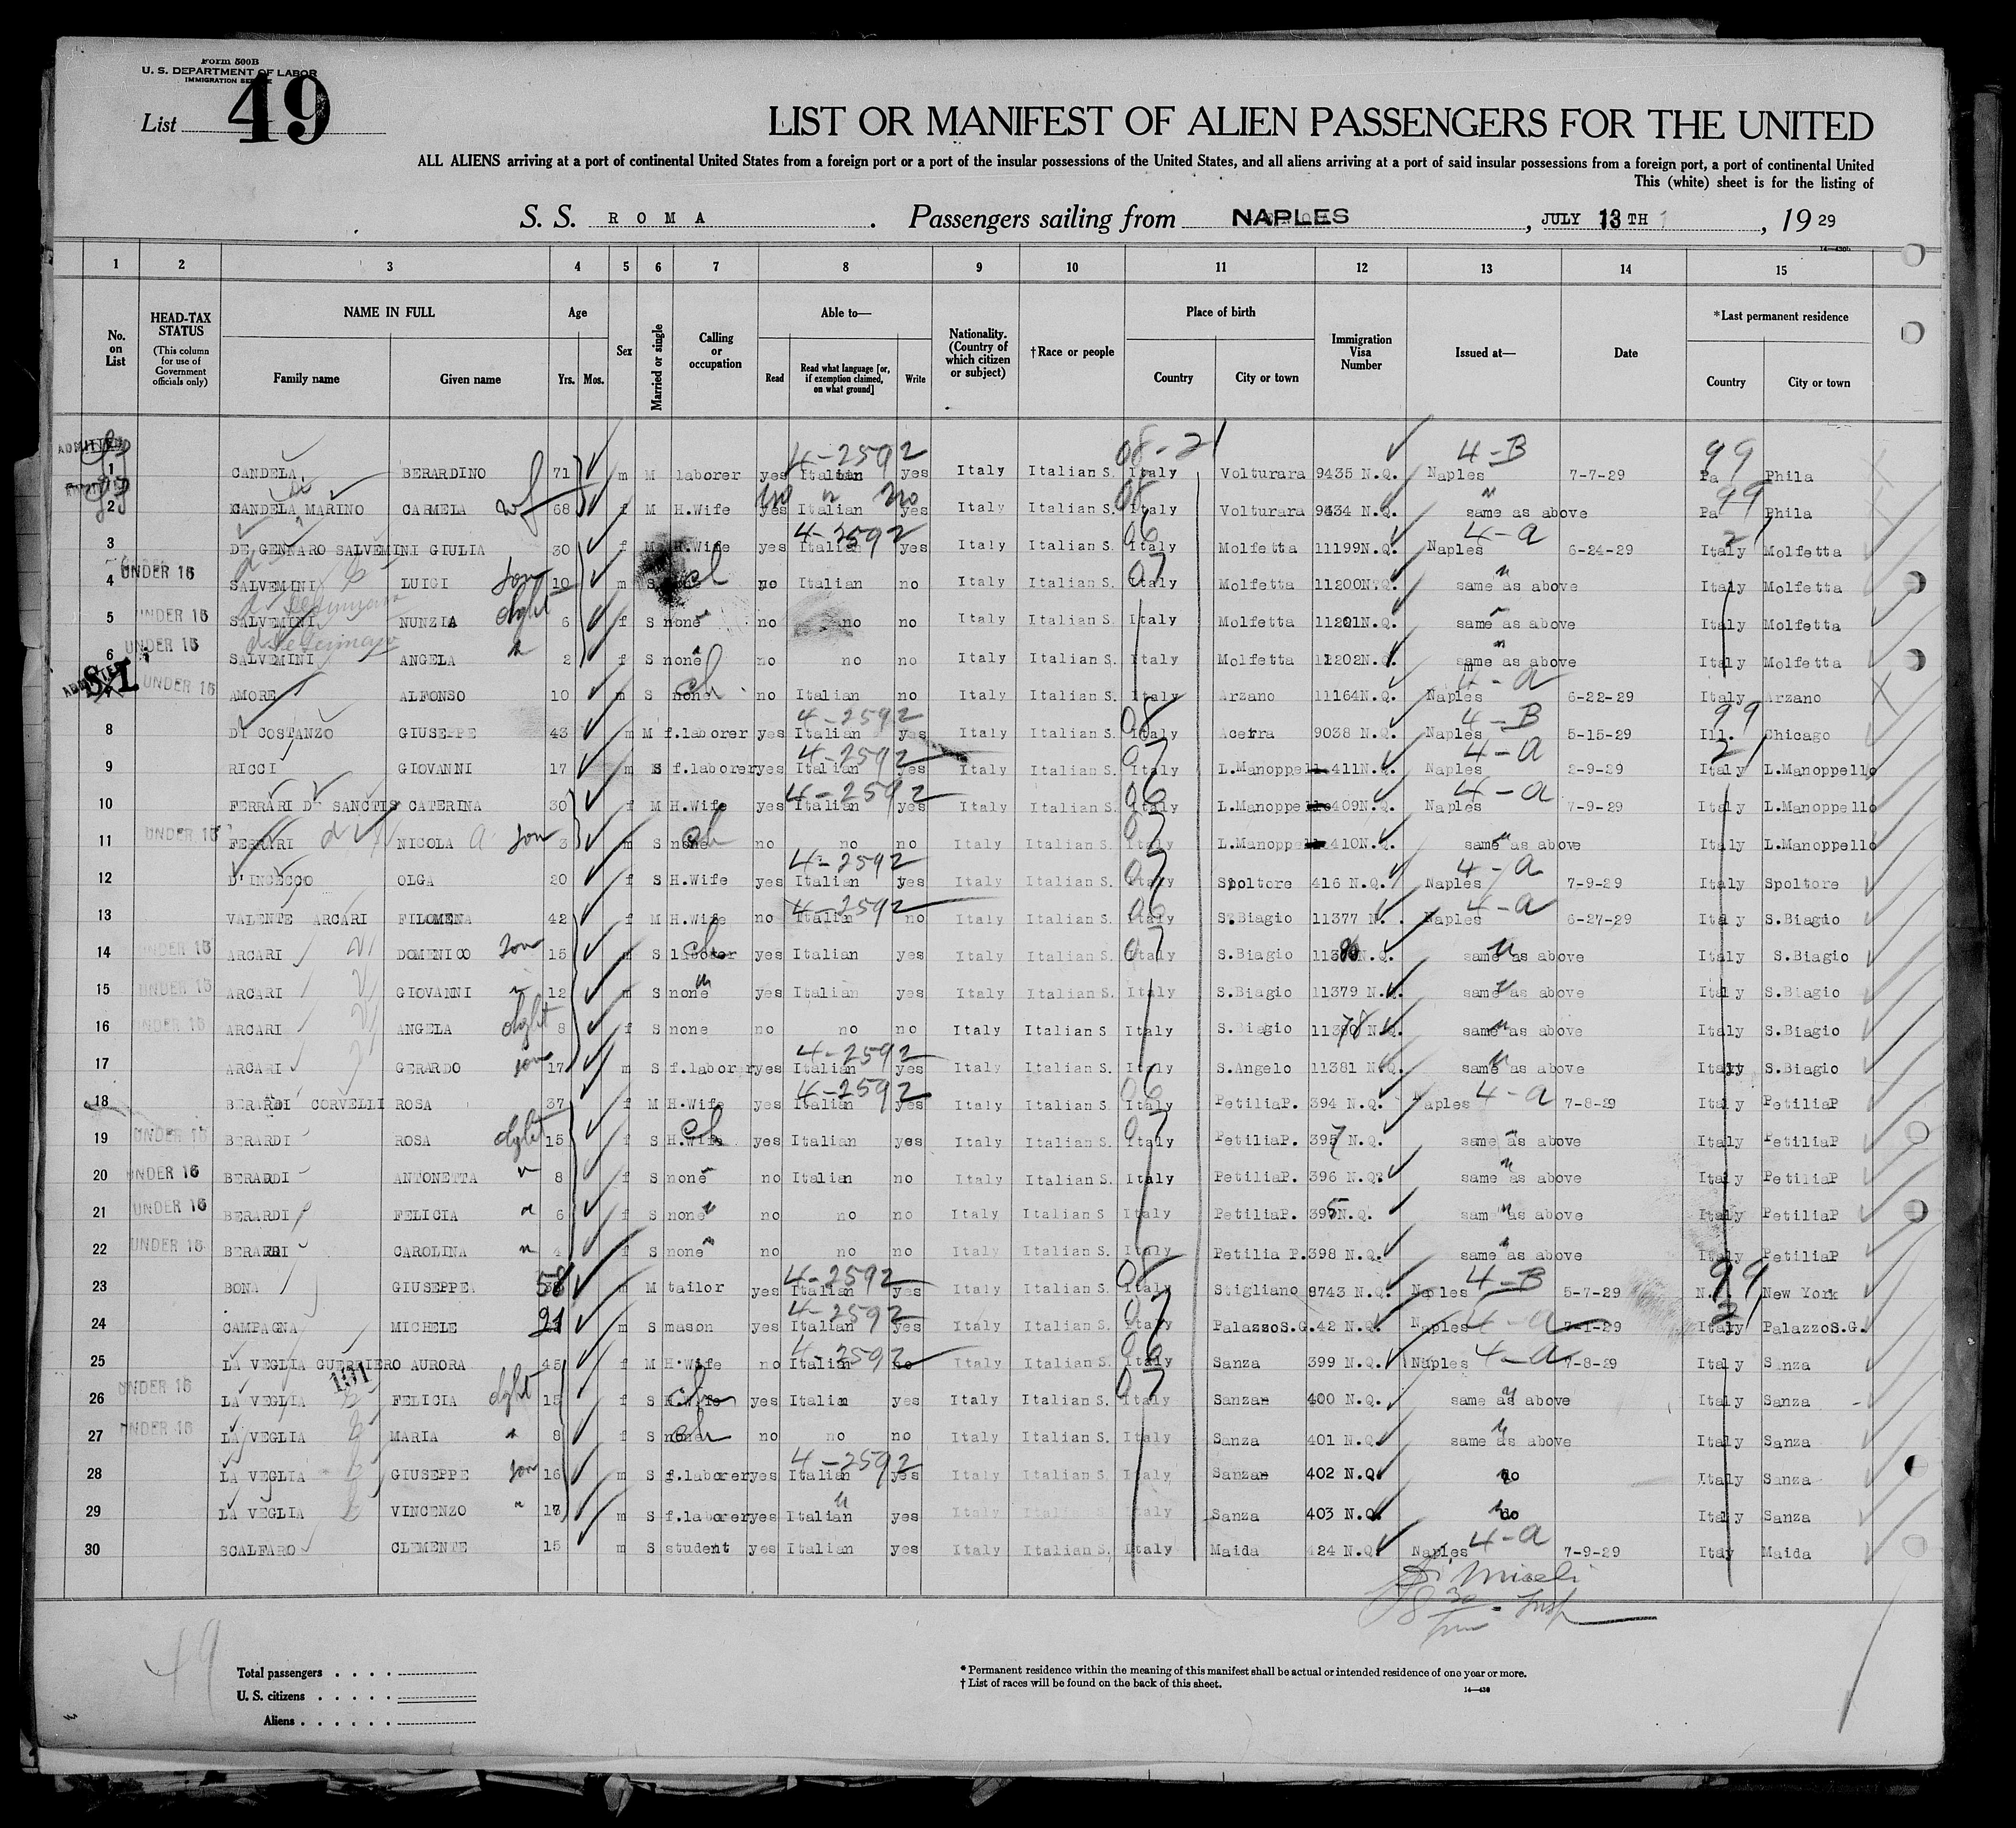 Form 500B
U. S. DEPARTMENT OF LABOR
IMMIGRATION SERVICE
List 49
LIST OR MANIFEST OF ALIEN PASSENGERS FOR THE UNITED
ALL ALIENS arriving at a port of continental United States from a foreign port or a port of the insular possessions of the United States, and all aliens arriving at a port of said insular possessions from a foreign port, a port of continental United
This (white) sheet is for the listing of
S. S. ROMA. Passengers sailing from NAPLES, JULY 13TH, 1929
14—430b
1 2 3 4 5 6 7 8 9 10 11 12 13 14 15
No. on List
HEAD-TAX STATUS (This column for use of Government officials only)
NAME IN FULL Family name Given name
Age Yrs. Mos.
Sex
Married or single
Calling or occupation
Able to— Read Read what language [or, if exemption claimed, on what ground] Write
Nationality. (Country of which citizen or subject)
†Race or people
Place of birth Country City or town
Immigration Visa Number
Issued at—
Date
*Last permanent residence Country City or town
ADMITTED 4-2592 08-21 4-B 99
1 CANDELA BERARDINO 71 m M laborer yes Italian yes Italy Italian S. Italy Volturara 9435 N.Q. Naples 7-7-29 Pa Phila
2 CANDELA MARINO CARMELA wf 68 f M H.Wife yes no Italian yes no Italy Italian S. Italy Volturara 9434 N.Q. same as above Pa 99 Phila
4-2592 06 4-a 21
3 DE GENNARO SALVEMINI GIULIA 30 f M H.Wife yes Italian yes Italy Italian S. Italy Molfetta 11199N.Q. Naples 6-24-29 Italy Molfetta
4 UNDER 16 SALVEMINI LUIGI son 10 m S none ch no Italian no Italy Italian S. Italy 07 Molfetta 11200N.Q. same as above Italy Molfetta
5 UNDER 16 SALVEMINI NUNZIA dght 6 f S none no no no Italy Italian S. Italy Molfetta 11201N.Q. same as above Italy Molfetta
6 UNDER 16 SALVEMINI ANGELA 2 f S none no no no Italy Italian S. Italy Molfetta 11202N.Q. same as above Italy Molfetta
ADMITTED S.I. UNDER 16 AMORE ALFONSO 10 m S none ch no Italian no Italy Italian S. Italy Arzano 11164N.Q. Naples 4-a 6-22-29 Italy Arzano
4-2592 08 4-B 99
8 DI COSTANZO GIUSEPPE 43 m M f.laborer yes Italian yes Italy Italian S. Italy Acerra 9038 N.Q. Naples 5-15-29 Ill. Chicago
4-2592 07 4-a 21
9 RICCI GIOVANNI 17 m S f.laborer yes Italian yes Italy Italian S. Italy L.Manoppello 411N.Q. Naples 2-9-29 Italy L.Manoppello
4-2592 06 4-a
10 FERRARI DE SANCTIS CATERINA 30 f M H.Wife yes Italian yes Italy Italian S. Italy L.Manoppello 409N.Q. Naples 7-9-29 Italy L.Manoppello
11 UNDER 16 FERRARI NICOLA son 3 m S none ch no no no Italy Italian S. Italy 07 L.Manoppello 410N.Q. same as above Italy L.Manoppello
4-2592 07 4-a
12 D'INCECCO OLGA 20 f S H.Wife yes Italian yes Italy Italian S. Italy Spoltore 416 N.Q. Naples 7-9-29 Italy Spoltore
4-2592 06 4-a
13 VALENTE ARCARI FILOMENA 42 f M H.Wife no Italian no Italy Italian S. Italy S.Biagio 11377 N. Naples 6-27-29 Italy S.Biagio
14 UNDER 16 ARCARI DOMENICO son 15 m S laborer ch yes Italian yes Italy Italian S. Italy 07 S.Biagio 11380N.Q. same as above Italy S.Biagio
15 UNDER 16 ARCARI GIOVANNI 12 m S none yes Italian yes Italy Italian S. Italy S.Biagio 11379 N.Q. same as above Italy S.Biagio
16 UNDER 16 ARCARI ANGELA dght 8 f S none no no no Italy Italian S. Italy S.Biagio 11378 N.Q. same as above Italy S.Biagio
4-2592
17 ARCARI GERARDO son 17 m S f.laborer yes Italian yes Italy Italian S. Italy S.Angelo 11381 N.Q. same as above Italy S.Biagio
4-2592 06 4-a
18 BERARDI CORVELLI ROSA 37 f M H.Wife yes Italian yes Italy Italian S. Italy PetiliaP. 394 N.Q. Naples 7-8-29 Italy PetiliaP
19 UNDER 16 BERARDI ROSA dght 15 f S H.Wife ch yes Italian yes Italy Italian S. Italy 07 PetiliaP. 397 N.Q. same as above Italy PetiliaP
20 UNDER 16 BERARDI ANTONETTA 8 f S none no Italian no Italy Italian S. Italy PetiliaP. 396 N.Q. same as above Italy PetiliaP
21 UNDER 16 BERARDI FELICIA 6 f S none no no no Italy Italian S Italy PetiliaP. 395N.Q. sam as above Italy PetiliaP
22 UNDER 16 BERARDI CAROLINA 4 f S none no no no Italy Italian S Italy Petilia P.398 N.Q. same as above Italy PetiliaP
4-2592 08 4-B 99
23 BONA GIUSEPPE 58 m M tailor yes Italian yes Italy Italian S. Italy Stigliano 8743 N.Q. Naples 5-7-29 N.Y. New York
4-2592 07 4-a 21
24 CAMPAGNA MICHELE 21 m S mason yes Italian yes Italy Italian S. Italy PalazzoS.G.42 N.Q. Naples 7-1-29 Italy PalazzoS.G.
4-2592 06 4-a
25 LA VEGLIA GUERRIERO AURORA 45 f M H.Wife no Italian no Italy Italian S. Italy Sanza 399 N.Q. Naples 7-8-29 Italy Sanza
191
26 UNDER 16 LA VEGLIA FELICIA dght 15 f S H.Wife ch yes Italian yes Italy Italian S. Italy 07 Sanza 400 N.Q. same as above Italy Sanza
27 UNDER 16 LA VEGLIA MARIA 8 f S none ch no no no Italy Italian S. Italy Sanza 401 N.Q. same as above Italy Sanza
4-2592
28 LA VEGLIA GIUSEPPE son 16 m S f.laborer yes Italian yes Italy Italian S. Italy Sanza 402 N.Q. do Italy Sanza
29 LA VEGLIA VINCENZO m S f.laborer yes Italian yes Italy Italian S. Italy Sanza 403 N.Q. do Italy Sanza
30 SCALFARO CLEMENTE 15 m S student yes Italian yes Italy Italian S. Italy Maida 424 N.Q. Naples 4-a 7-9-29 Italy Maida
Miceli
Insp
49
Total passengers
U. S. citizens
Aliens
*Permanent residence within the meaning of this manifest shall be actual or intended residence of one year or more.
†List of races will be found on the back of this sheet.
14—430